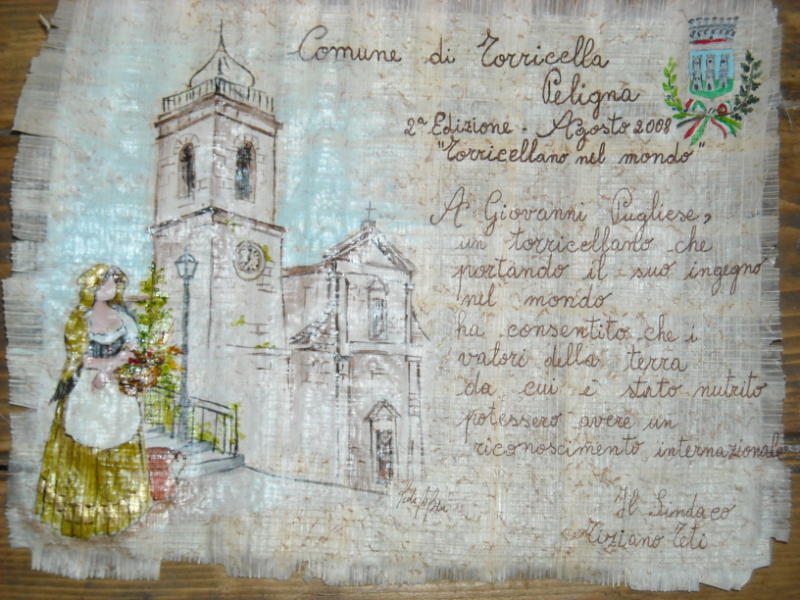 Comune di Torricella
Peligna
2ª Edizione - Agosto 2008
"Torricellano nel mondo"
A Giovanni Pugliese,
un torricellano che
portando il suo ingegno
nel mondo
ha consentito che i
valori della terra
da cui è stato nutrito
potessero avere un
riconoscimento internazionale
Il Sindaco
Tiziano Teti